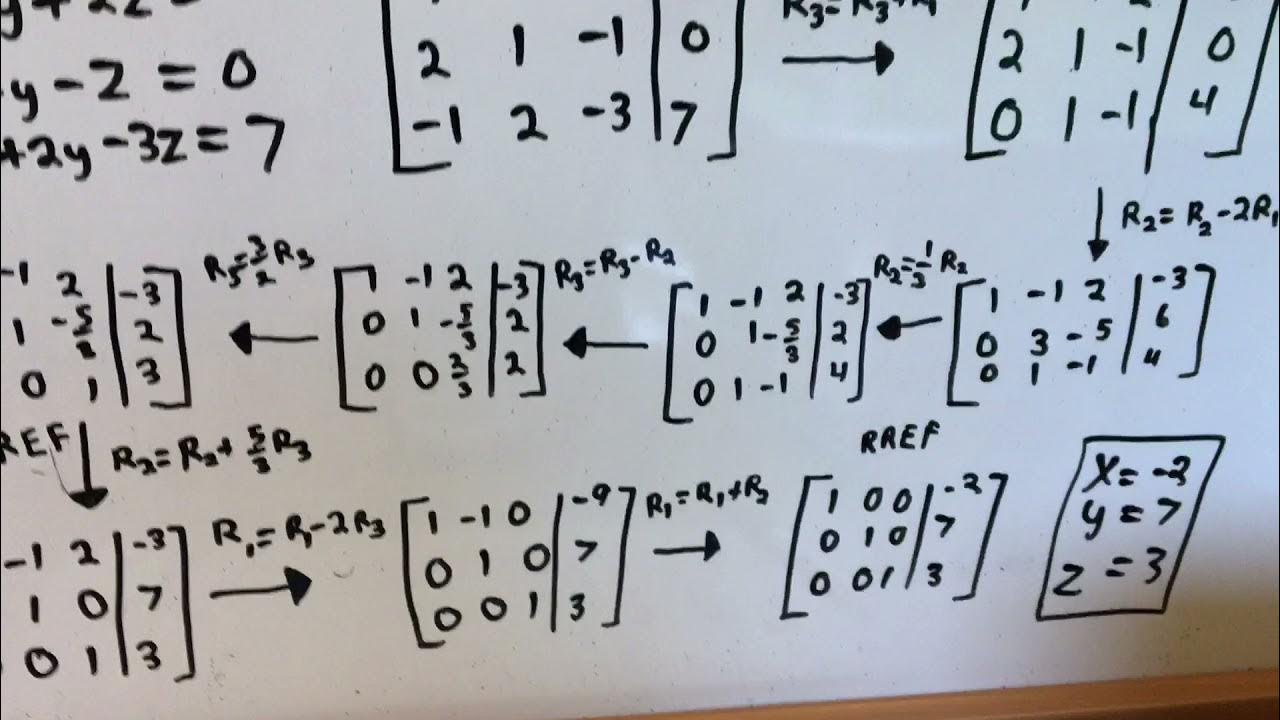 y+2z=
y-z=0
+2y-3z=7
2 1 -1 | 0
-1 2 -3 | 7
R₃=R₃+R₁
2 1 -1 | 0
0 1 -1 | 4
R₂=R₂-2R₁
1 -1 2 | -3
0 3 -5 | 6
0 1 -1 | 4
R₂=1/3 R₂
1 -1 2 | -3
0 1 -5/3 | 2
0 1 -1 | 4
R₃=R₃-R₂
1 -1 2 | -3
0 1 -5/3 | 2
0 0 2/3 | 2
R₃=3/2 R₃
-1 2 | -3
1 -5/3 | 2
0 1 | 3
REF
R₂=R₂+5/3 R₃
-1 2 | -3
1 0 | 7
0 1 | 3
R₁=R₁-2R₃
1 -1 0 | -9
0 1 0 | 7
0 0 1 | 3
R₁=R₁+R₂
RREF
1 0 0 | -2
0 1 0 | 7
0 0 1 | 3
x=-2
y=7
z=3